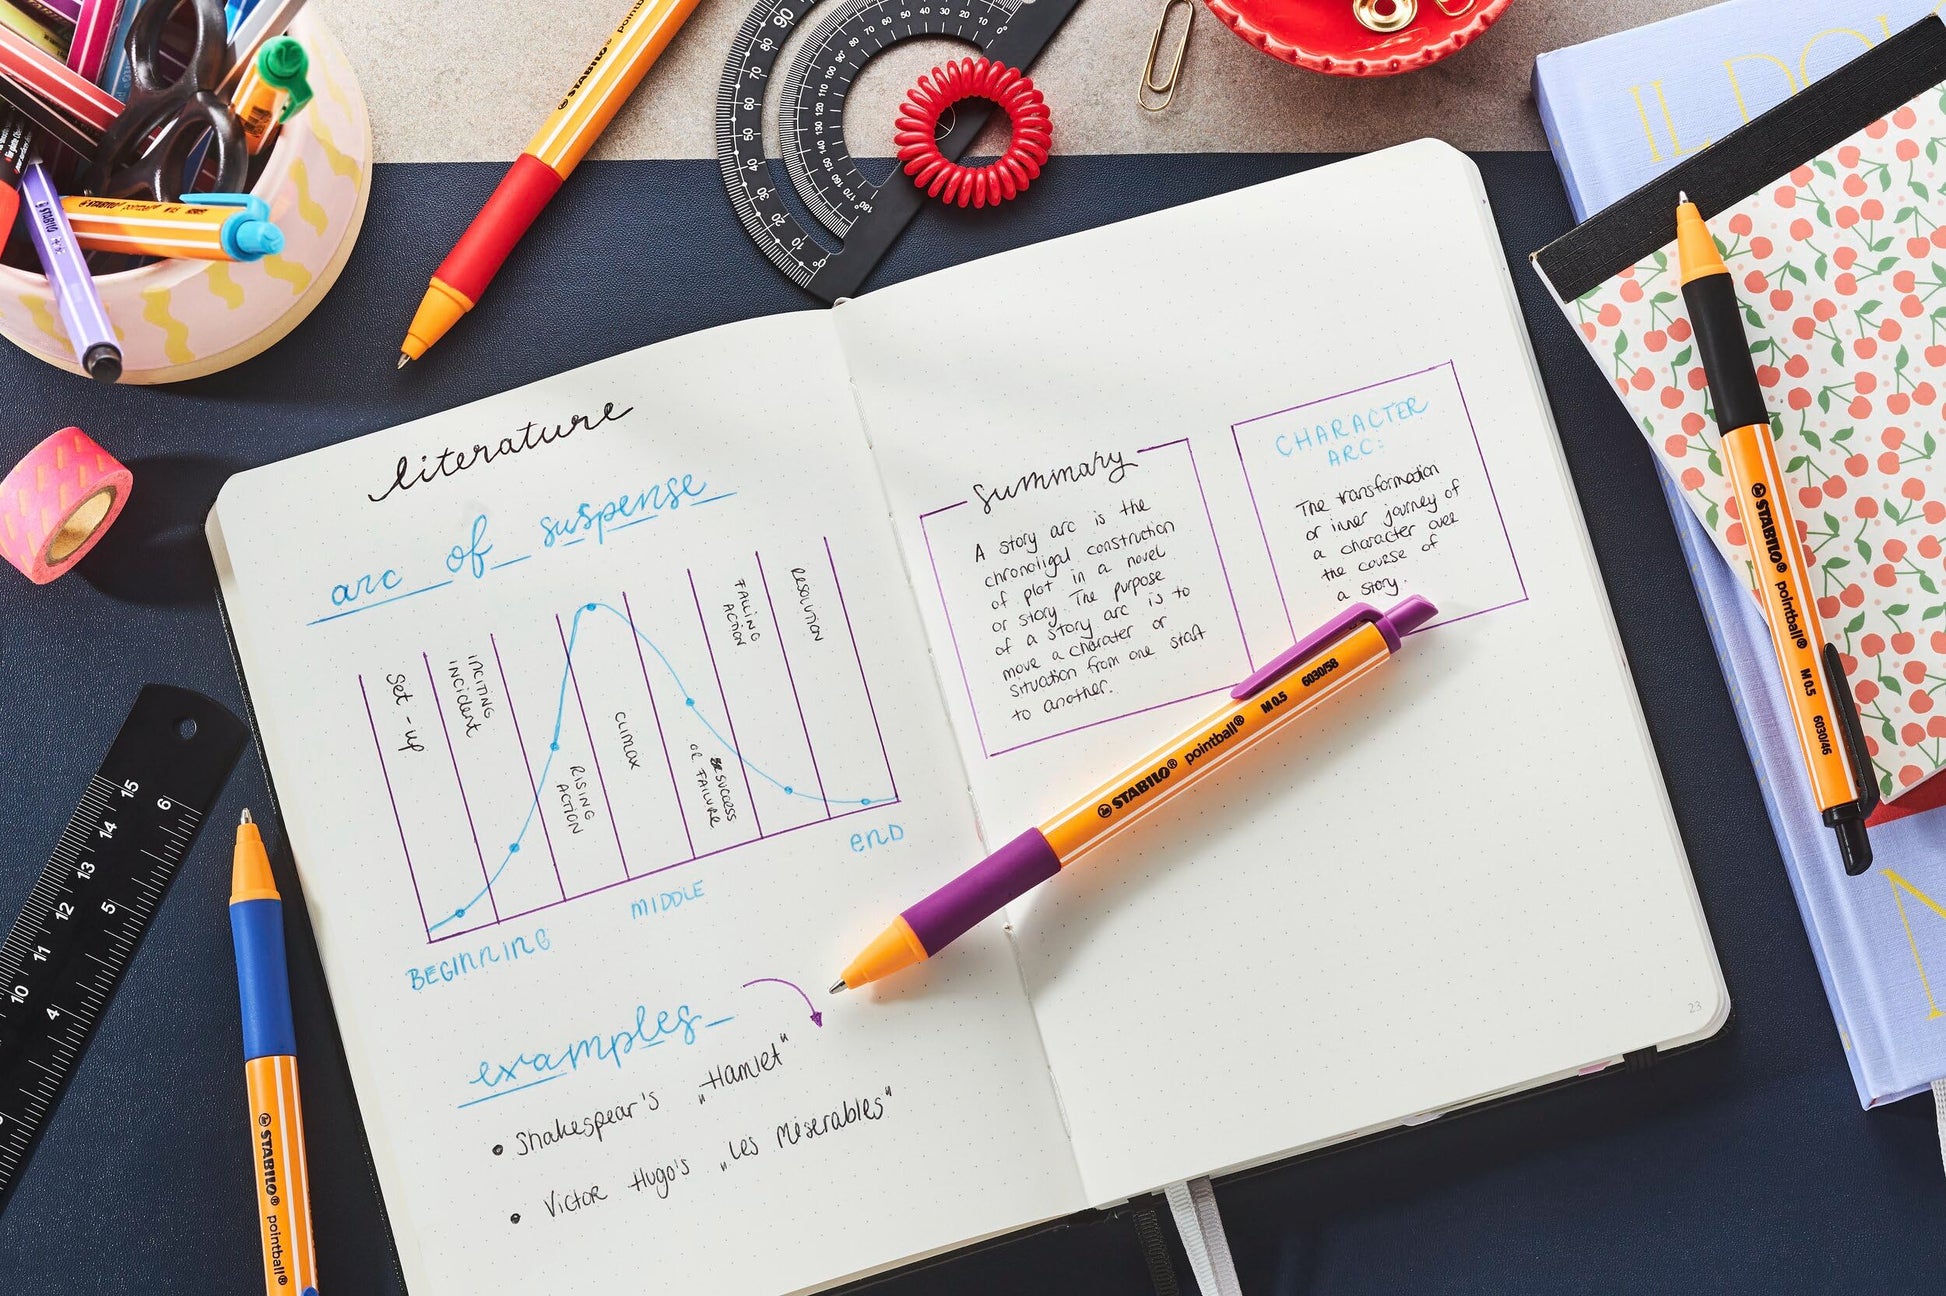 literature
arc of suspense
Set-up
inciting
incident
RISING
ACTION
CLIMAX
SUCCESS
OR FAILURE
FALLING
ACTION
RESOLUTION
BEGINNING
MIDDLE
END
examples
• Shakespear's „Hamlet"
• Victor Hugo's „Les Miserables"
summary
A story arc is the
chronoligal construction
of plot in a novel
or story. The purpose
of a story arc is to
move a charater or
situation from one start
to another.
CHARACTER
ARC:
The transformation
or inner journey of
a character over
the course of
a story.
23
STABILO® pointball® M 0.5 6030/58
STABILO® pointball® M 0.5 6030/46
STABILO® pointball®
STABILO® pointball
STABILO pointball
15
14
13
12
11
10
6
5
4
90
80
70
60
50
40
30
20
10
0°